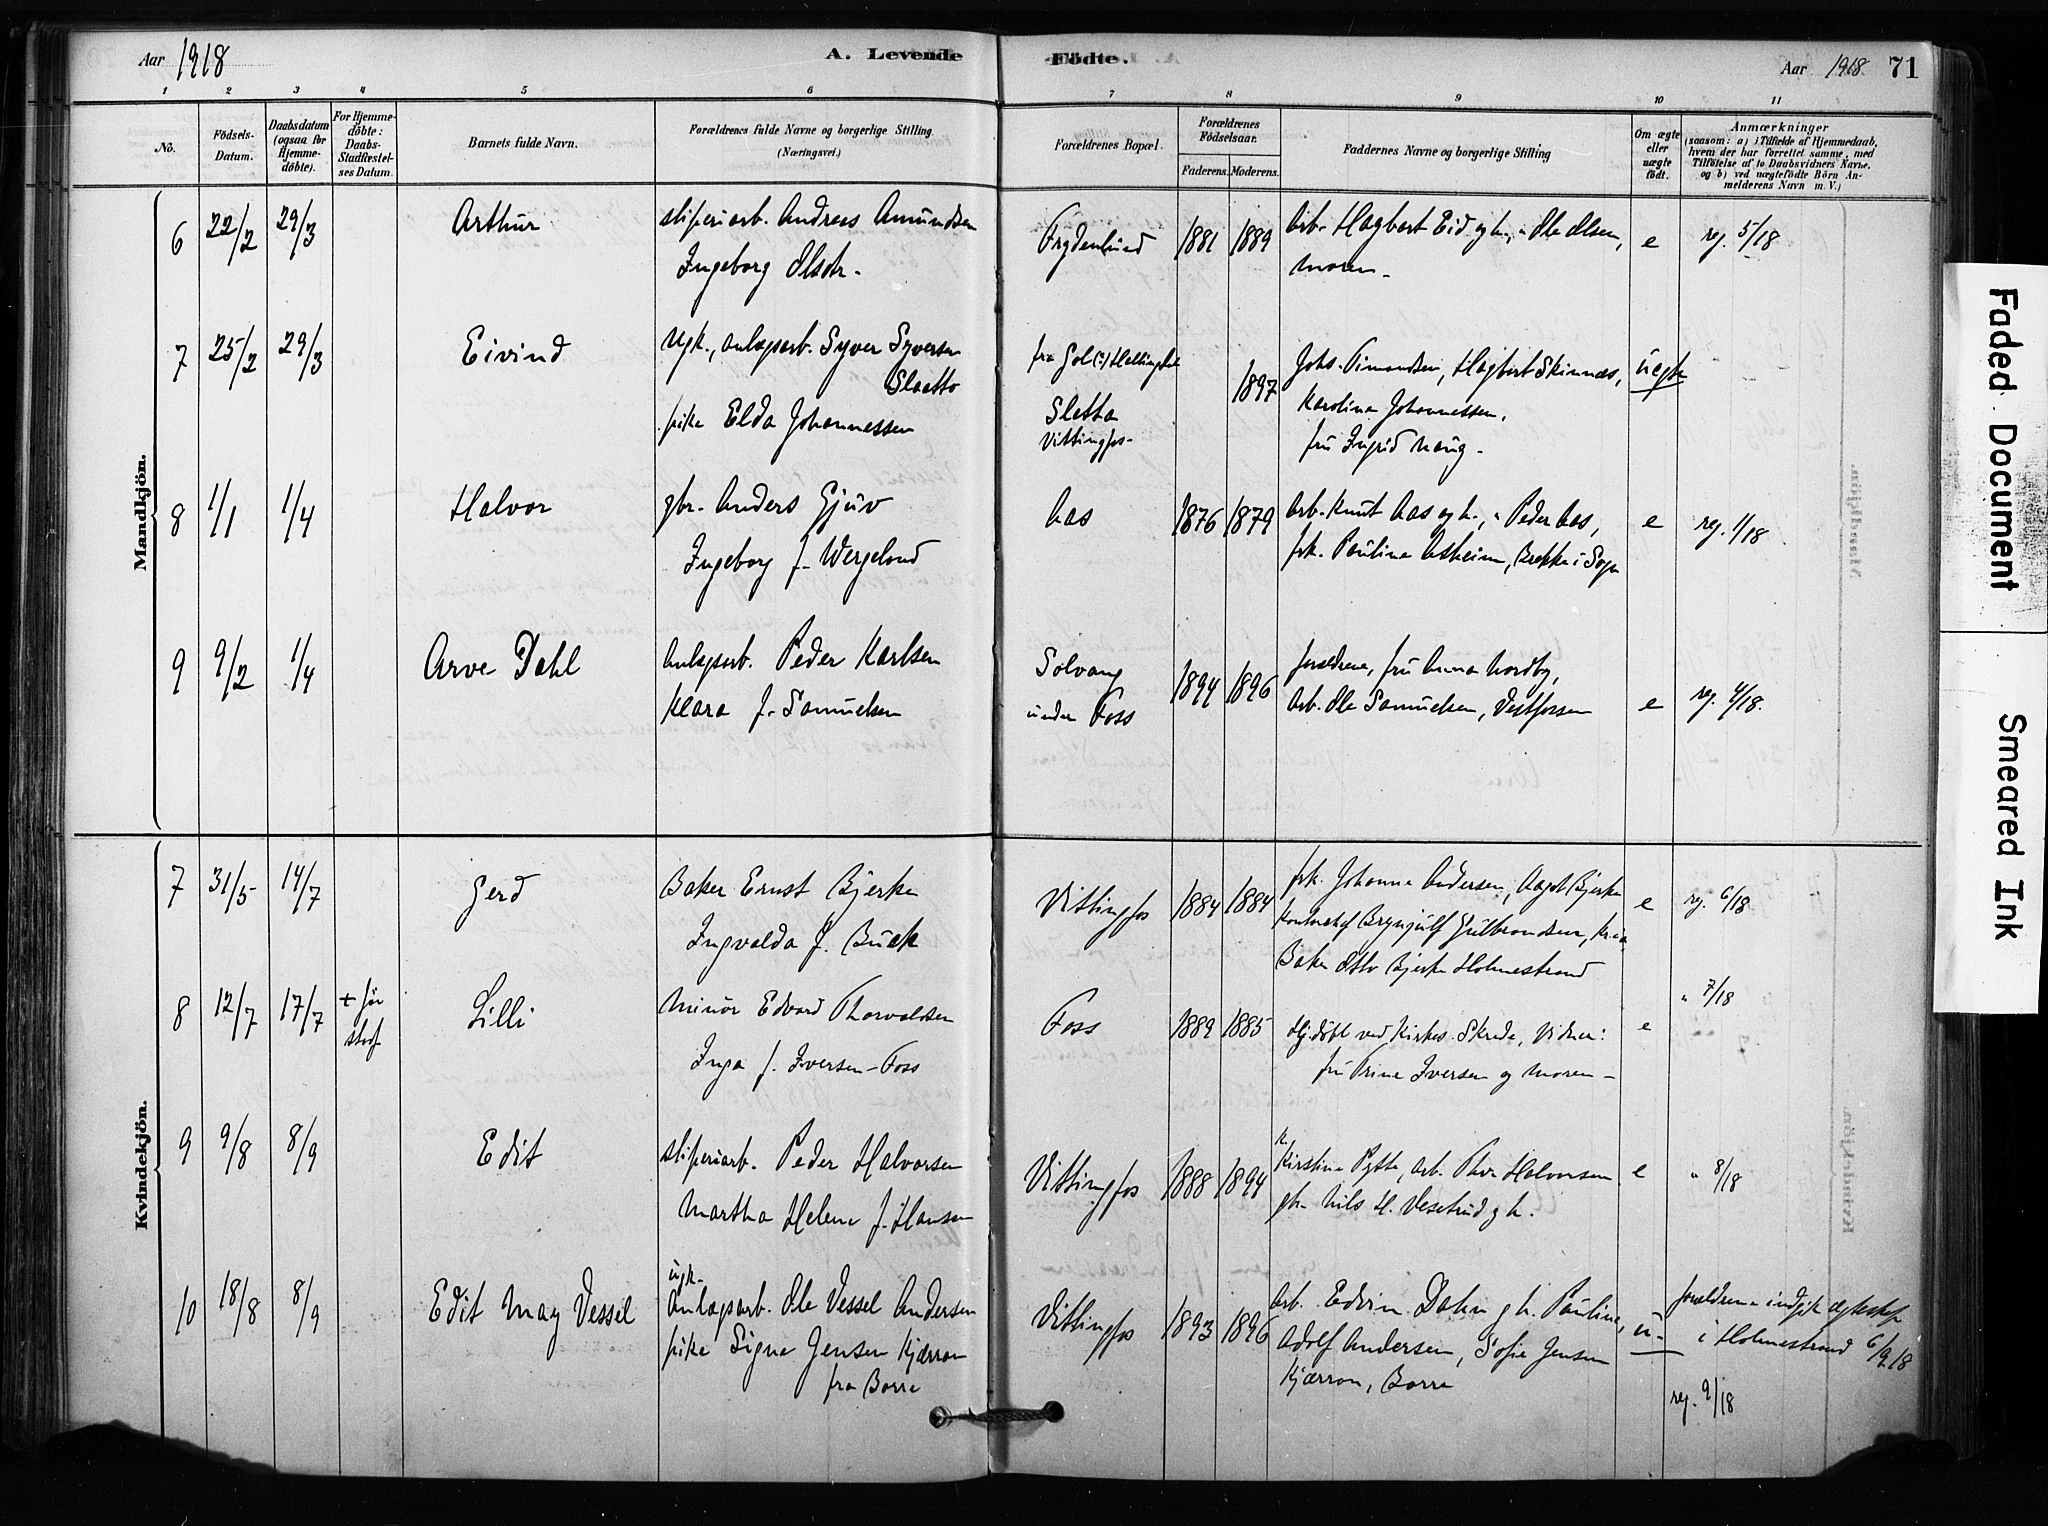 Aar 1918
A. Levende
Födte.
Aar 1918
71
1 2 3 4 5 6 7 8 9 10 11
No.
Födsels-
Datum.
Daabsdatum
(ogsaa for
Hjemme-
döbte).
For Hjemme-
döbte:
Daabs-
Stadfæstel-
ses Datum.
Barnets fulde Navn.
Forældrenes fulde Navne og borgerlige Stilling.
(Næringsvei.)
Forældrenes Bopæl.
Forældrenes
Födselsaar.
Faderens. Moderens.
Faddernes Navne og borgerlige Stilling
Om ægte
eller
uægte
født.
Anmærkninger
(saasom: a) i Tilfælde af Hjemmedaab,
hvem der har forrettet samme, med
Tilföielse af to Daabsvidners Navne,
og b) ved uægtefödte Börn An-
melderens Navn m. V.)
Mandkjön.
6 22/2 29/3 Arthur sliperiarb. Andreas Amundsen
Ingeborg Olsdtr.
Frydenlund 1881 1889 Arb. Hagbart Eid og h., " Ole Olsen,
moren -
e reg. 5/18
7 25/2 29/3 Eivind Ugk., anlægsarb. Syver Syversen
Slaatto
pike Elda Johannessen
fra Gol (i) Hallingdal
Sletta
Vittingfos-
1897 Johs. Simondsen, Hagbart Skinnes,
Karoline Johannessen.
fru Ingrid Haug -
uegte
8 1/1 1/4 Halvor gbr. Anders Gjuv
Ingeborg f. Wergeland
Aas 1876 1879 Arb. Knut Aas og h., " Peder Aas,
frk. Pauline Asheim, Brekke i Sogn
e reg. 1/18
9 9/2 1/4 Arve Dahl Anlægsarb. Peder Karlsen
Klara f. Samuelsen
Solvang
under Foss
1894 1896 forældrene, fru Anna Nordby,
Arb. Ole Samuelsen, Vestfossen
e reg. 4/18.
Kvindekjön.
7 31/5 14/7 Gerd Baker Ernst Bjerke
Ingvalda f. Buck
Vittingfos 1884 1884 frk. Johanne Andersen, Aagot Bjerke
kontorchef Brynjulf Gulbrandsen, Kr.ia
Baker Otto Bjerke Holmestrand
e reg. 6/18
8 12/7 17/7 + før
stadf
Lilli Minør Edvard Thorvaldsen
Inga f. Iversen - Foss
Foss 1889 1885 Hj.døbt ved Kirkes. Skrede, Vidner:
fru Trine Iversen og moren -
e " 7/18
9 9/8 8/9 Edit sliperiarb. Peder Halvorsen
Martha Helene f. Hansen
Vittingfos 1888 1894 k.
Kirstine Pytte, arb. Thor Halvorsen
gbr. Nils H. Vesetrud og h.
e " 8/18
10 18/8 8/9 Edit May Vessel ugk.
Anlægsarb. Ole Vessel Andersen
pike Signe Jensen Kjærran
fra Borre
Vittingfos 1893 1896 Arb. Edvin Dahn og h. Pauline,
Adolf Andersen, Sofie Jensen
Kjærran, Borre
u- forældrene indgik ægteskap
i Holmestrand 6/9 18
reg. 9/18
Faded Document
Smeared Ink